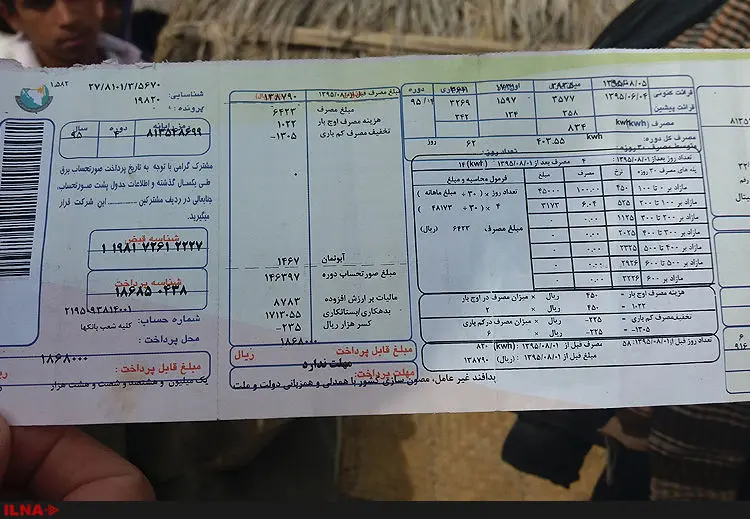 شناسایی: ۲۷/۸۱۰۱/۳/۵۶۷۰
۱,۵۸۲
پرونده: ۱۹۸۲۰
سال دوره
۹۵ ۴ ۸۱۳۵۴۸۶۹۹
مشترک گرامی با توجه به تاریخ پرداخت صورتحساب برق
طی یکسال گذشته و اطلاعات جدول پشت صورتحساب،
جنابعالی در ردیف مشترکین ............ این شرکت قرار
میگیرید.
شناسه قبض
۱ ۱۹۸۱ ۷۲۶۱ ۲۲۲۷
شناسه پرداخت
۱۸۶۸۵ ۰۴۳۸
۲۱۹۵۰۹۳۸۱۴۰۰۱
شماره حساب: کلیه شعب بانکها
محل پرداخت:
۱۸۶۸۰۰۰
مبلغ قابل پرداخت: ریال
یک میلیون و هشتصد و شصت و هشت هزار
مبلغ مصرف قبل از ۱۳۹۵/۰۸/۰۱ ۱۳۸۷۹۰
مبلغ مصرف ۶۴۲۳
هزینه مصرف اوج بار ۱۰۲۲
تخفیف مصرف کم باری -۱۳۰۵
۰
آبونمان ۱۴۶۷
مبلغ صورتحساب دوره ۱۴۶۳۹۷
مالیات بر ارزش افزوده ۸۷۸۳
بدهکاری/بستانکاری ۱۷۱۳۰۵۵
کسر هزار ریال -۲۳۵
۱۸۶۸۰۰۰
مبلغ قابل پرداخت ریال
مهلت ندارد
مهلت پرداخت:
پدافند غیر عامل، مصون سازی کشور با همدلی و همزبانی دولت و ملت
دوره ۹۵/۴
قرائت کنونی ۱۳۹۵/۰۸/۰۵
قرائت پیشین ۱۳۹۵/۰۶/۰۴ ۳۵۷۷ ۱۵۹۷ ۳۲۶۹
۳۵۸ ۱۳۴ ۳۴۲
مصرف kwh ۸۳۴
مصرف کل دوره: kwh ۴۰۳.۵۵ ۶۲ روز
متوسط مصرف ۳۰ روزه: تعداد روز:
تعداد روز بعد از ۱۳۹۵/۰۸/۰۱: ۴ مصرف بعد از ۱۳۹۵/۰۸/۰۱ (kwh): ۱۴
پله های مصرف ۳۰ روزه نرخ مصرف مبلغ فرمول محاسبه و مبلغ
مازاد بر ۰ تا ۱۰۰ ۴۵۰ ۱۰۰.۰۰ ۴۵۰۰۰ تعداد روز × (۳۰ ÷ مبلغ ماهانه)
مازاد بر ۱۰۰ تا ۲۰۰ ۵۲۵ ۶.۰۴ ۳۱۷۳ ۴ × (۳۰ ÷ ۴۸۱۷۳)
مازاد بر ۲۰۰ تا ۳۰۰ ۱۱۲۵ ۰.۰۰ ۰ مبلغ مصرف ۶۴۲۳ (ریال)
مازاد بر ۳۰۰ تا ۴۰۰ ۲۰۲۵ ۰.۰۰ ۰
مازاد بر ۴۰۰ تا ۵۰۰ ۲۳۲۵ ۰.۰۰ ۰
مازاد بر ۵۰۰ تا ۶۰۰ ۲۹۲۶ ۰.۰۰ ۰
مازاد بر ۶۰۰ ۳۲۲۶ ۰.۰۰ ۰
هزینه مصرف اوج بار = ۴۵۰ ریال × میزان مصرف در اوج بار
۱۰۲۲ = ۴۵۰ ریال × ۲
تخفیف مصرف کم باری = -۲۲۵ ریال × میزان مصرف در کم باری
-۱۳۰۵ = -۲۲۵ ریال × ۶
تعداد روز قبل از ۱۳۹۵/۰۸/۰۱: ۵۸ مصرف قبل از ۱۳۹۵/۰۸/۰۱ (kwh): ۸۲۰
مبلغ قبل از ۱۳۹۵/۰۸/۰۱: (ریال) ۱۳۸۷۹۰
ILNA